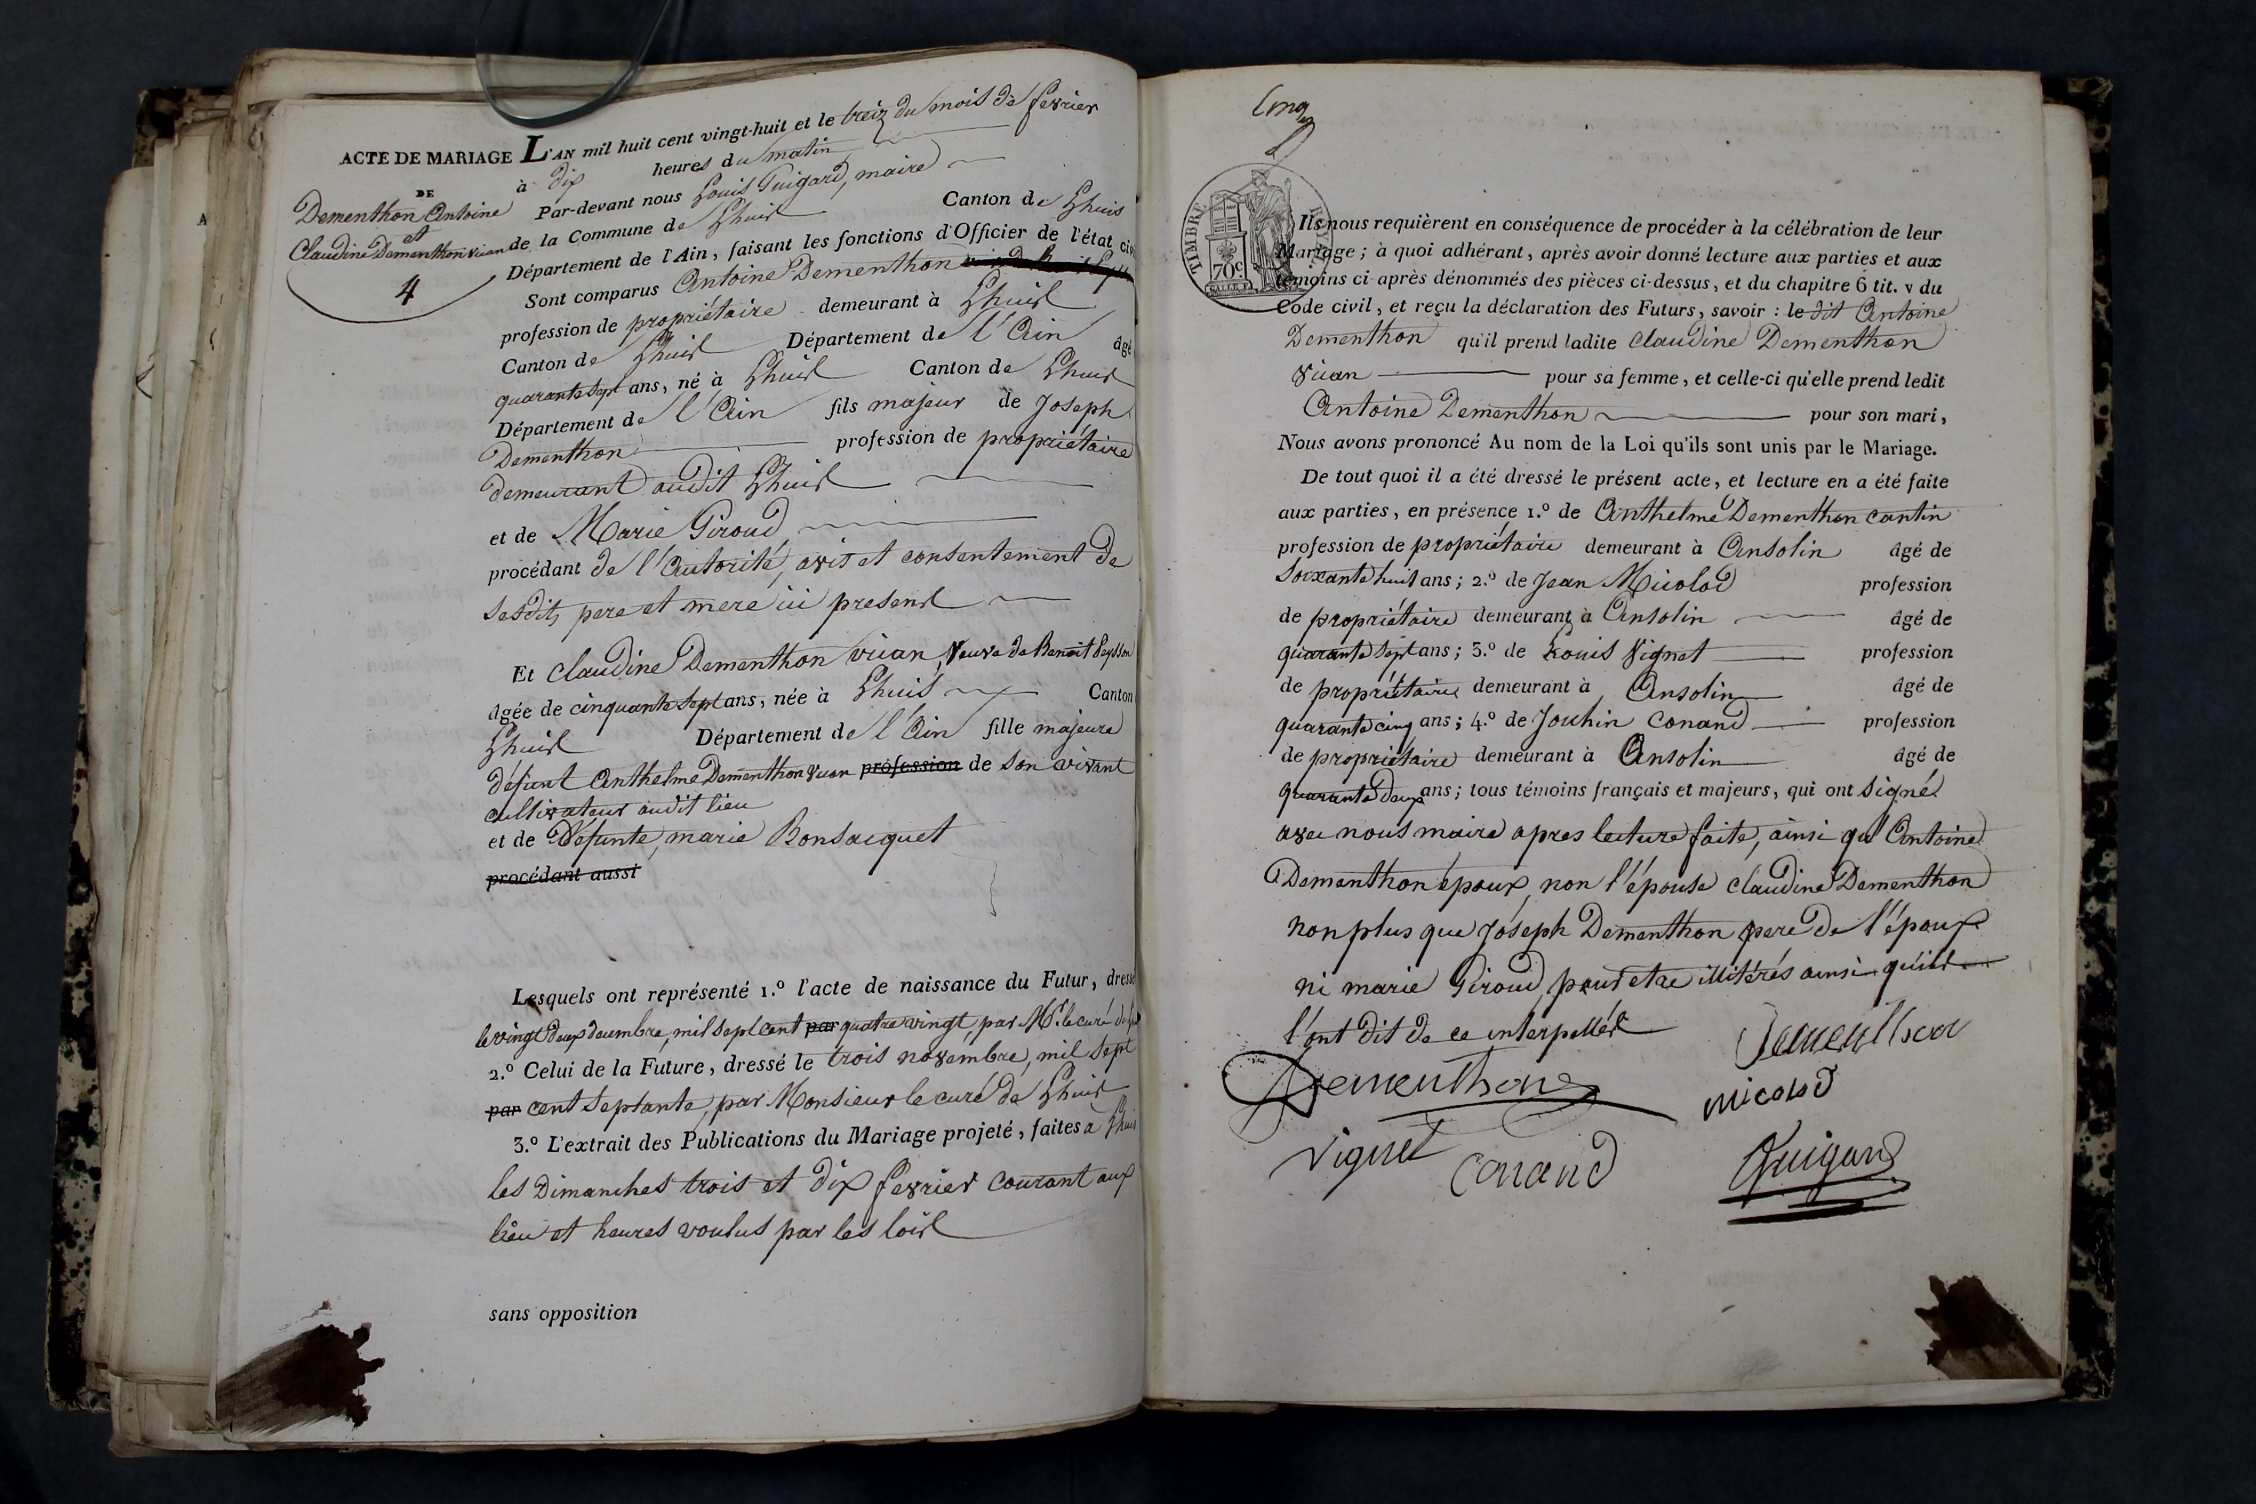 ACTE DE MARIAGE
DE
Dementhon Antoine
et
Claudine Dementhon vuan
4
L'AN mil huit cent vingt-huit et le treiz du mois de fevrier
à dix heures du matin
Par-devant nous Louis Guigard, maire
de la Commune de Lhuis Canton de Lhuis
Département de l'Ain, faisant les fonctions d'Officier de l'état civ
Sont comparus Antoine Dementhon
profession de propriétaire demeurant à Lhuis
Canton de Lhuis Département de l'Ain âgé
quarante sept ans, né à Lhuis Canton de Lhuis
Département de l'Ain fils majeur de Joseph
Dementhon profession de propriétaire
demeurant audit Lhuis
et de Marie Giroud
procédant de l'Autorité, avis et consentement de
sesdits pere et mere ici present
Et Claudine Dementhon vuan, Veuve de Benoit Peysson
âgée de cinquante sept ans, née à Lhuis Canton
Lhuis Département de l'Ain fille majeure
défunt Anthelme Dementhon vuan profession de son vivant
cultivateur audit lieu
et de Défunte, marie Bonsacquet
procédant aussi
Lesquels ont représenté 1.º l'acte de naissance du Futur, dressé
le vingt deux decembre, mil sept cent par quatre vingt, par Mr. le curé de
2.º Celui de la Future, dressé le trois novembre, mil sept
par cent septante, par Monsieur le curé de Lhuis
3.º L'extrait des Publications du Mariage projeté, faites à Lhuis
les Dimanches trois et dix fevrier courant aux
lieu et heures voulus par les lois
sans opposition
TIMBRE ROYAL
70c
Ils nous requièrent en conséquence de procéder à la célébration de leur
Mariage; à quoi adhérant, après avoir donné lecture aux parties et aux
témoins ci après dénommés des pièces ci-dessus, et du chapitre 6 tit. v du
Code civil, et reçu la déclaration des Futurs, savoir : le dit Antoine
Dementhon qu'il prend ladite Claudine Dementhon
vuan pour sa femme, et celle-ci qu'elle prend ledit
Antoine Dementhon pour son mari,
Nous avons prononcé Au nom de la Loi qu'ils sont unis par le Mariage.
De tout quoi il a été dressé le présent acte, et lecture en a été faite
aux parties, en présence 1.º de Anthelme Dementhon cantin
profession de propriétaire demeurant à Ansolin âgé de
Soixante huit ans; 2.º de Jean Micolod profession
de propriétaire demeurant à Ansolin âgé de
quarante sept ans; 3.º de Louis Vignet profession
de propriétaire demeurant à Ansolin âgé de
quarante cinq ans; 4.º de Jouhin Conand profession
de propriétaire demeurant à Ansolin âgé de
quarante deux ans; tous témoins français et majeurs, qui ont signé
avec nous maire apres lecture faite, ainsi qu'Antoine
Dementhon époux, non l'épouse Claudine Dementhon
non plus que Joseph Dementhon pere de l'époux
ni marie Giroud, pour etre illitérés ainsi qu'ils
l'ont dit de ce interpellés
Dementhon
Dementhon
micolod
Vignet
Conand
Guigard